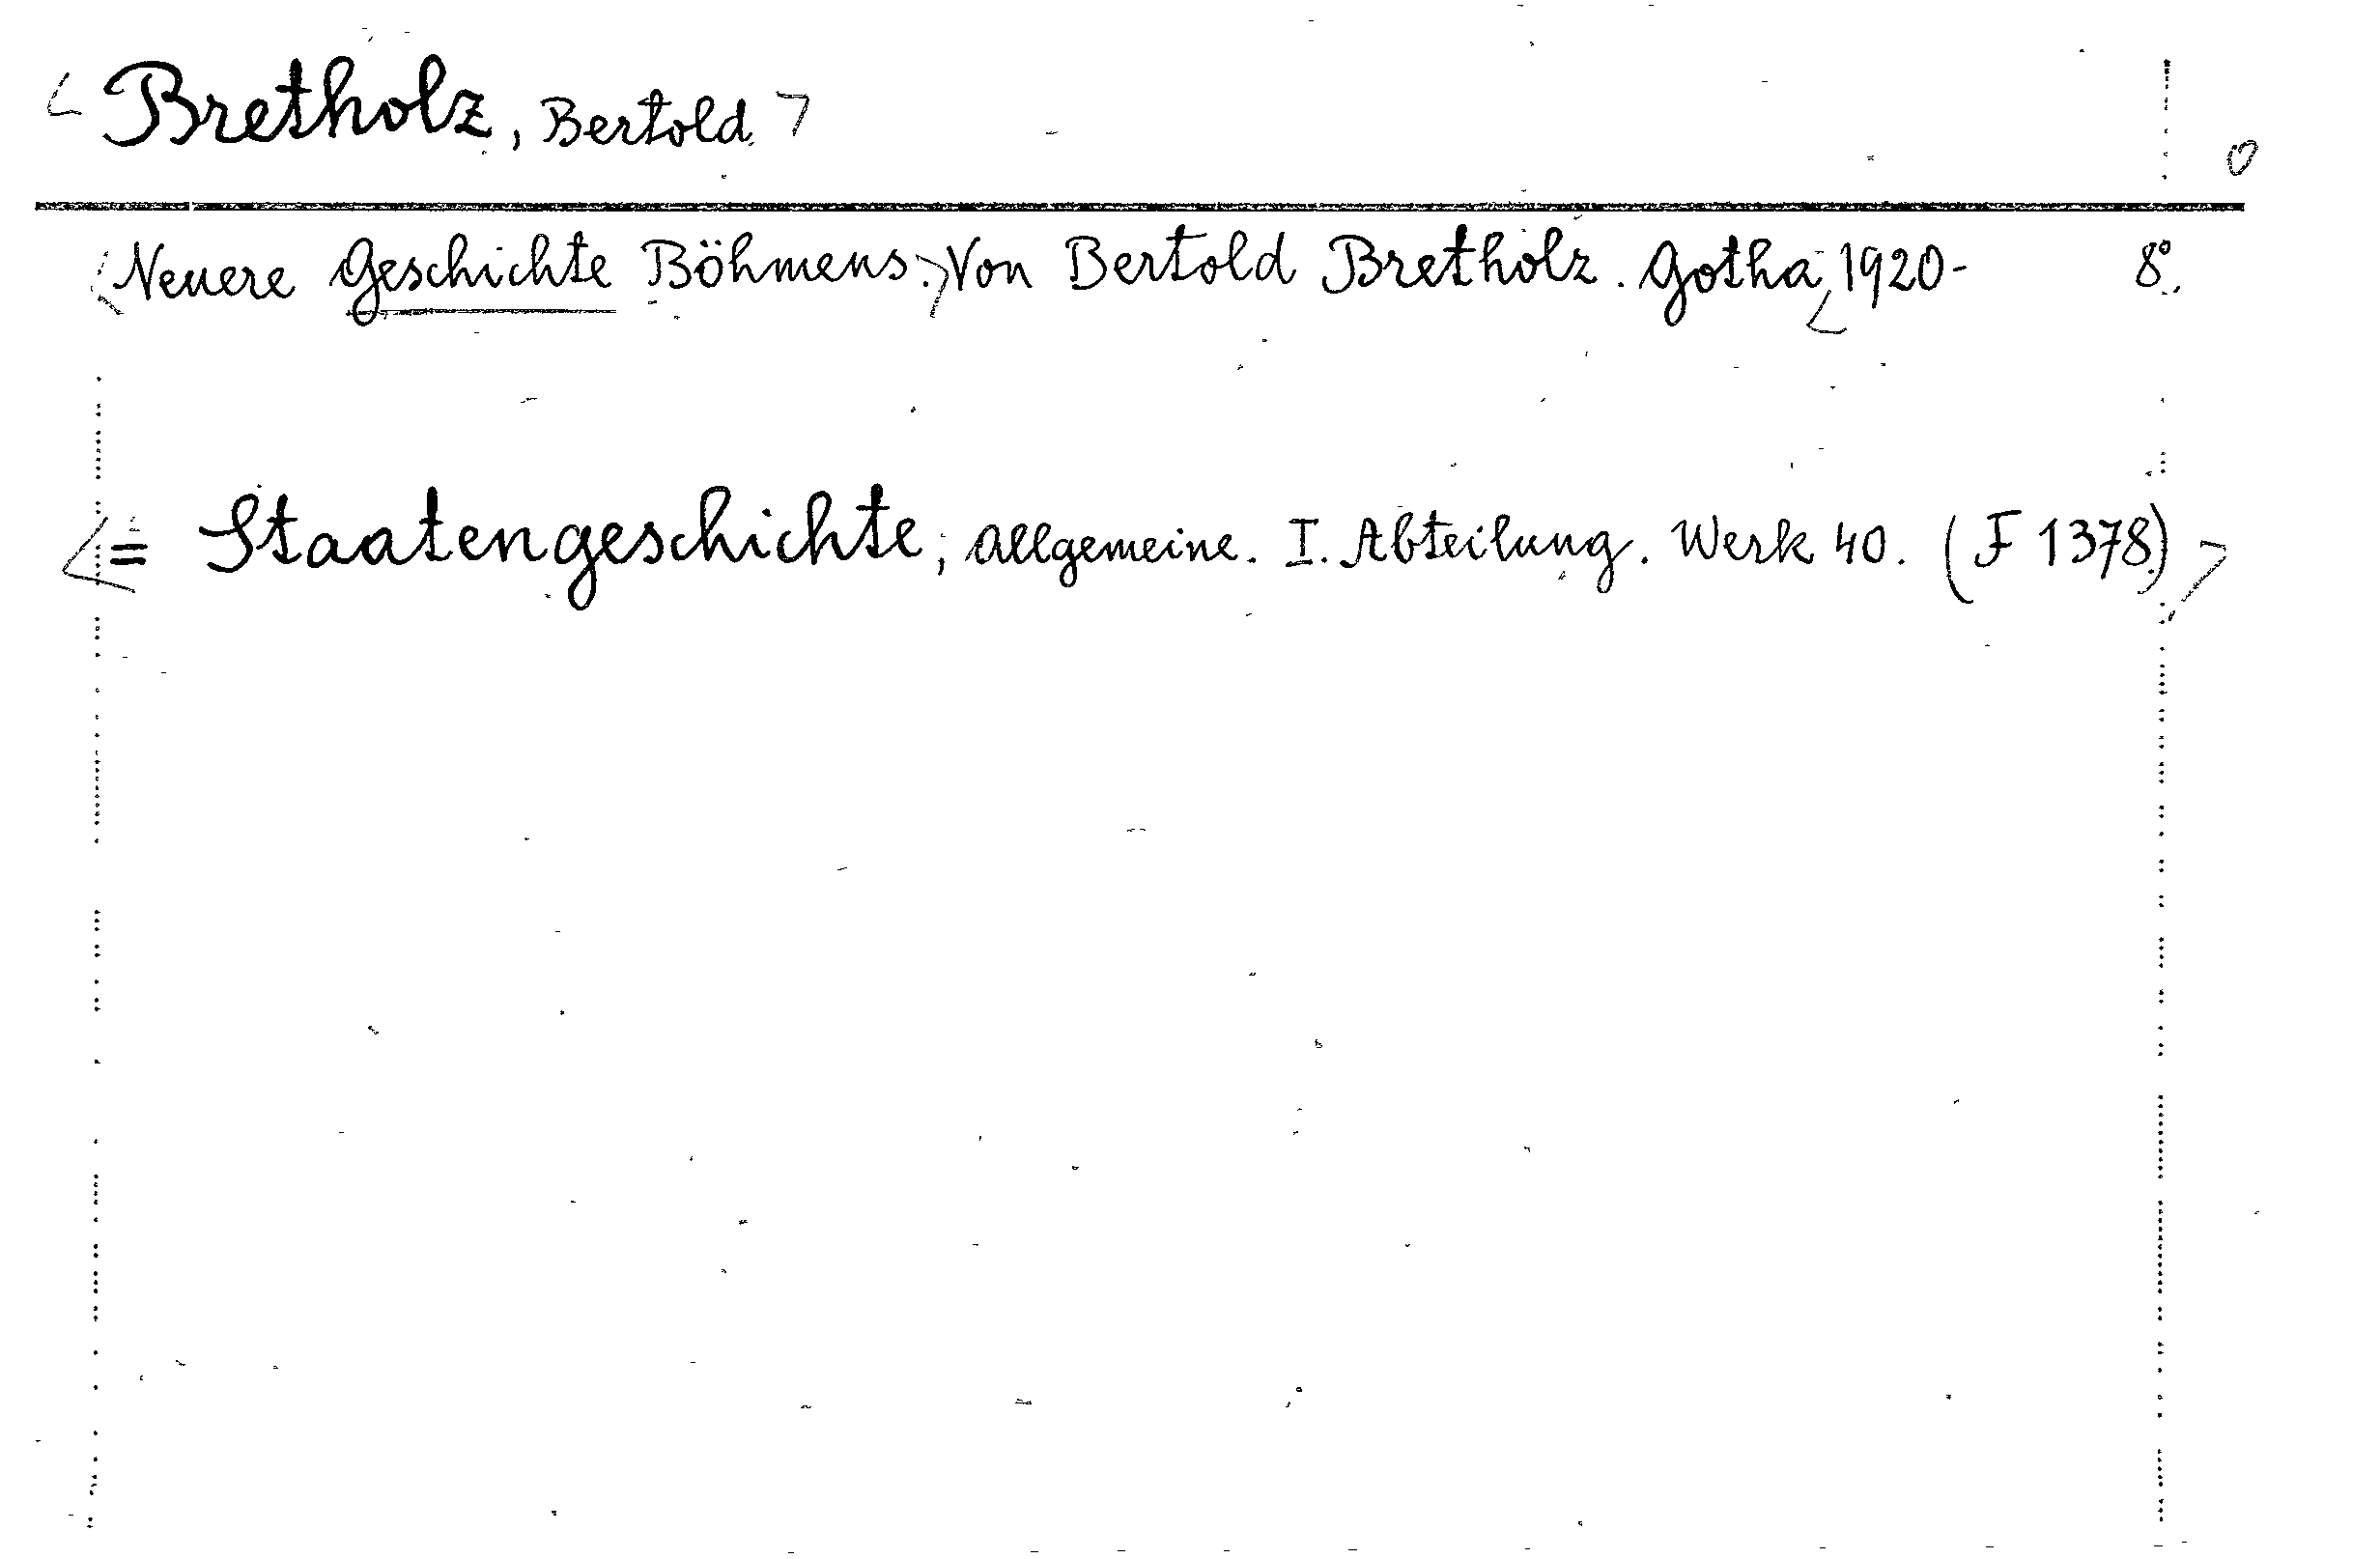 < Bretholz, Bertold >
0
<Neuere Geschichte Böhmens.> Von Bertold Bretholz. Gotha, <1920- 8°.
<= Staatengeschichte, allgemeine. I. Abteilung. Werk 40. (F 1378.)>